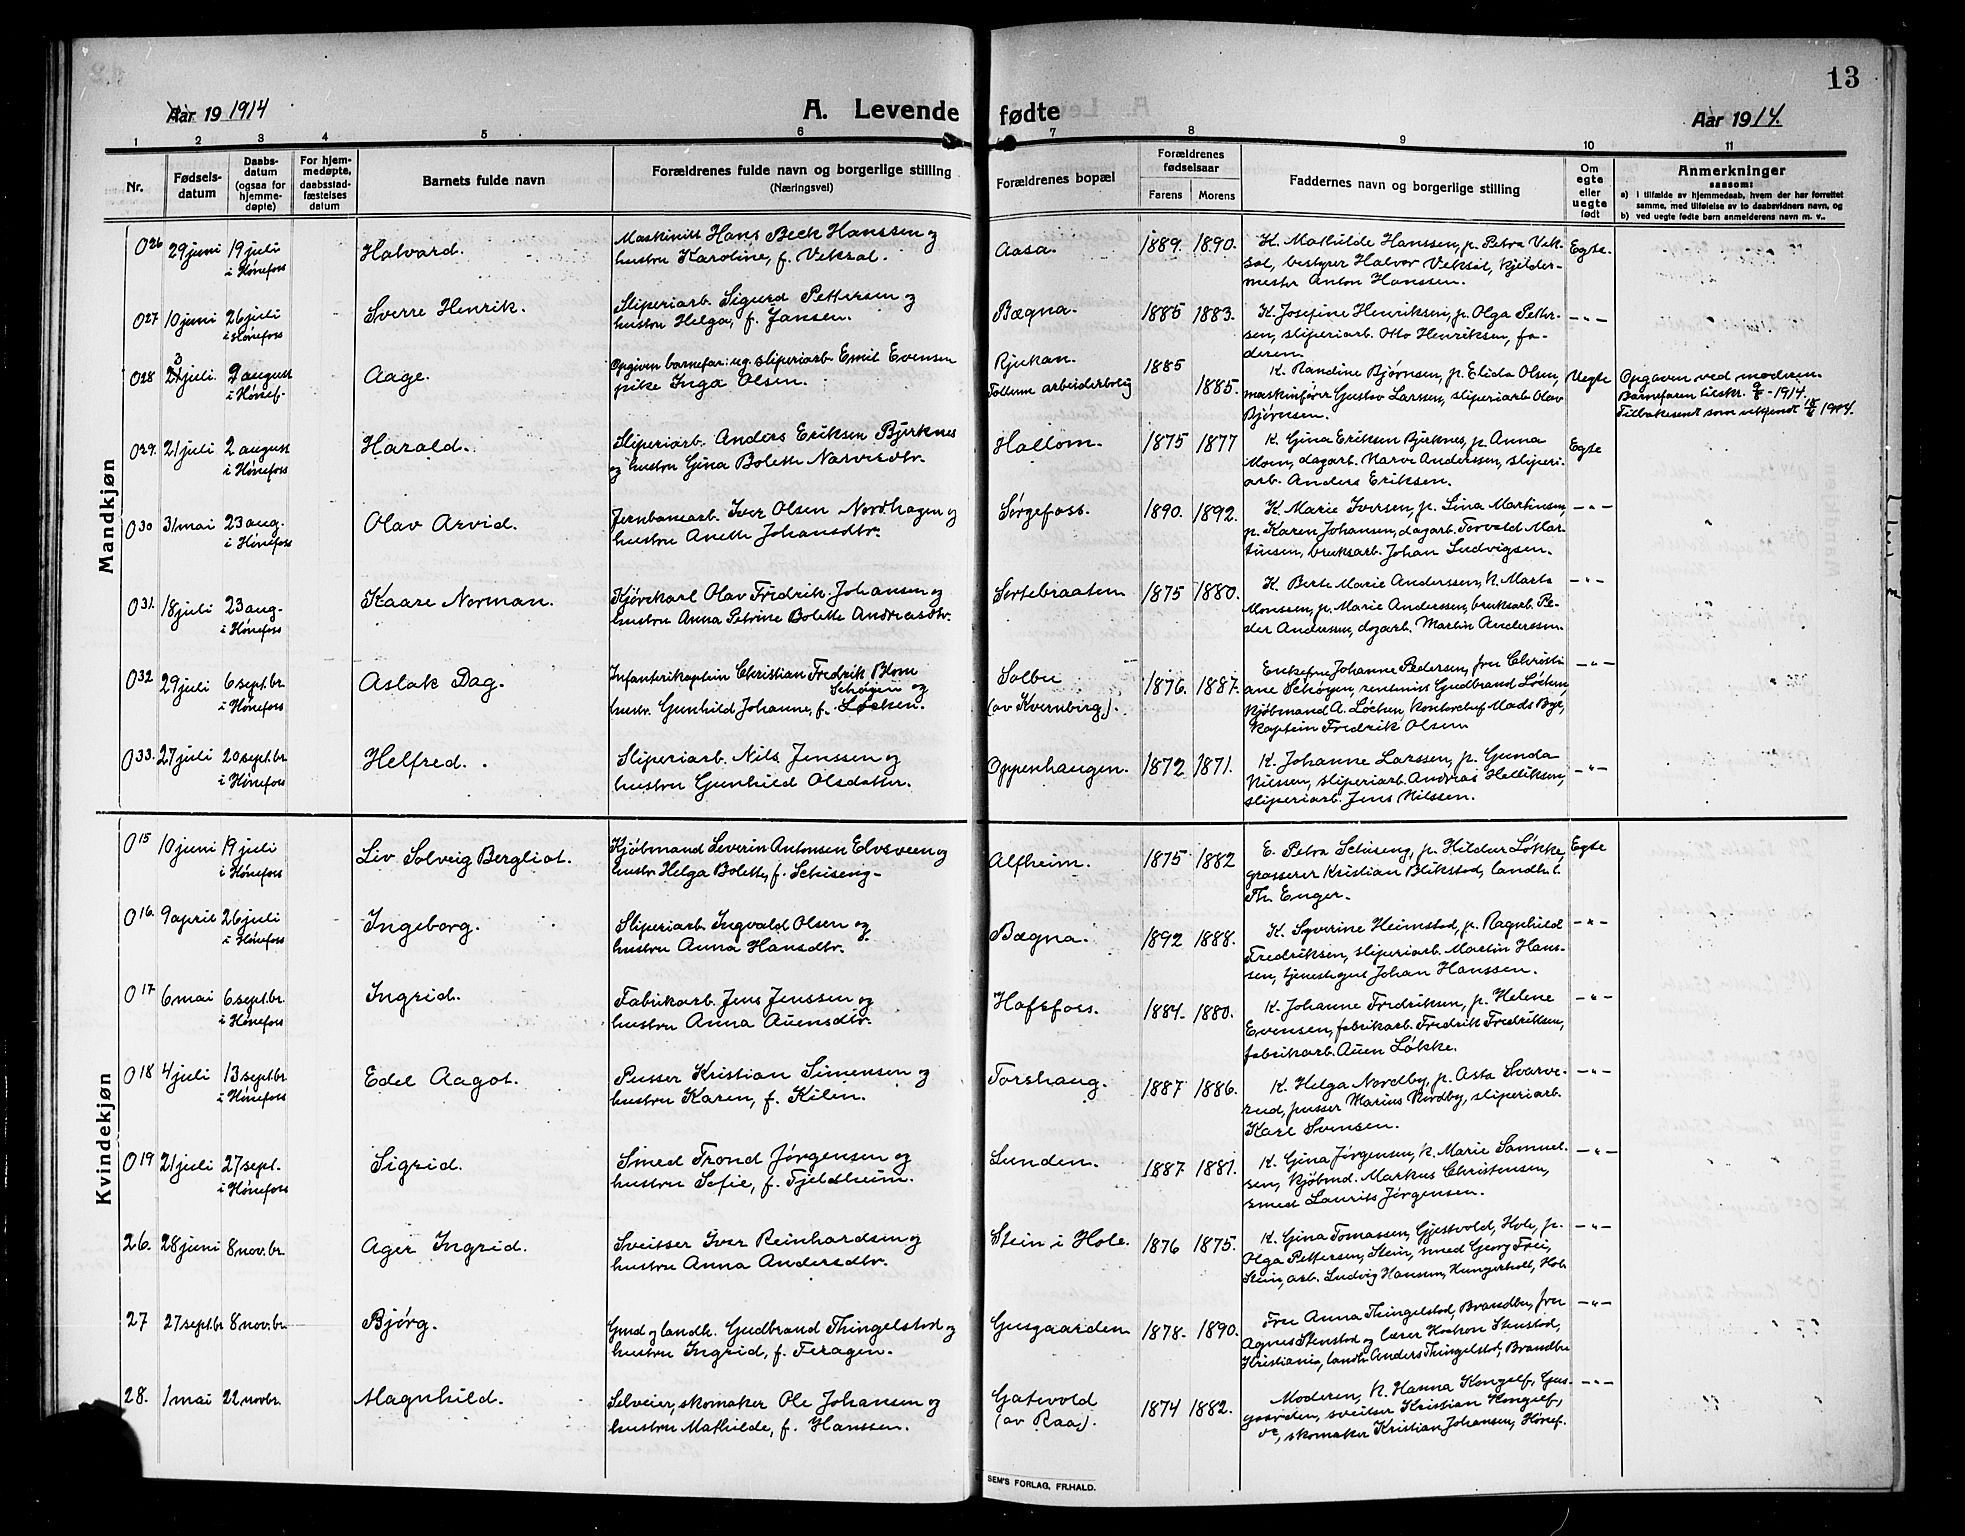 13
Aar 19 1914
A. Levende fødte
Aar 1914.
1 2 3 4 5 6 7 8 9 10 11
Nr.
Fødsels-
datum
Daabs-
datum
(ogsaa for
hjemme-
døpte)
For hjem-
medøpte,
daabsstad-
fæstelses
datum
Barnets fulde navn
Forældrenes fulde navn og borgerlige stilling
(Næringsvei)
Forældrenes bopæl
Forældrenes
fødselsaar
Farens Morens
Faddernes navn og borgerlige stilling
Om
egte
eller
uegte
født
Anmerkninger
saasom:
a) i tilfælde av hjemmedaab, hvem der har forrettet
samme, med tilføielse av to daabsvidners navn, og
b) ved uegte fødte børn anmelderens navn m. v..
Mandkjøn
026 29 juni 19 juli
i Hønefoss
Halvard.
Maskinist Hans Beck Hanssen og
hustru Karoline, f. Veksal.
Aasa.
1889. 1890.
K. Mathilde Hanssen, p. Petra Vek-
sal, bestyrer Halvor Veksal, kjelder-
mester Anton Hanssen.
Egte.
027 10 juni 26 juli
i Hønefoss
Sverre Henrik.
Sliperiarb. Sigurd Pettersen og
hustru Helga, f. Jansen.
Bægna.
1885 1883.
K. Josefine Henriksen, p. Olga Petter-
sen, sliperiarb. Otto Henriksen, fa-
deren.
-"-
028 juli. 2 august
i Hønef.
Aage.
Opgiven barnefar: ug. sliperiarb. Emil Evensen
pike Inga Olsen.
Rjukan.
Follum arbeiderbolig
1885
1885.
K. Randine Bjørnsen, p. Elida Olsen,
maskinfører Gustav Larssen, sliperiarb. Olav
Bjørnsen.
Uegte
Opgaven ved moderen.
Barnefaren tilskr. 9/8 - 1914.
Tilbakesendt som vekjendt 1914.
029. 21 juli 2 august
i Hønefoss
Harald.
Sliperiarb. Anders Eriksen Bjerknes
og hustru Gina Bolette Narvesdtr.
Hallom.
1875 1877
K. Gina Eriksen Bjerknes, p. Anna
Moen, dagarb. Narve Anderssen, sliperi-
arb. Anders Eriksen.
Egte
030 31 mai 23 aug.
i Hønefoss
Olav Arvid.
Jernbanearb. Iver Olsen Nordhagen og
hustru Anette Johansdtr.
Sørgefoss.
1890. 1892.
K. Marie Iversen, p. Lina Martinsen,
p. Karen Johansen, dagarb. Torvald Mar-
tinsen, bruksarb. Johan Ludvigsen.
-"-
031. 18 juli 23 aug.
i Hønefoss
Kaare Norman.
Kjørekarl Olav Fredrik Johansen og
hustru Anna Petrine Bolette Andreasdtr.
Sortebraaten
1875 1880.
K. Berte Marie Anderssen, k. Marta
Monssen, p. Marie Anderssen, bruksarb. Pe-
der Andersen, dagarb. Martin Anderssen.
-"-
032 29 juli 6 sept.br
i Hønefoss
Aslak Dag.
Infanterikaptein Christian Fredrik Blom
Schøyen og
hustr. Gunhild Johanne, f. Løchen.
Solbu
(av Kvernberg).
1876. 1887.
Enkefru Johanne Pedersen, fru Christi
ane Schøyen, rentenist Gudbrand Løchen,
kjøbmand A. Løchen, kontorchef Mads Bye,
kaptein Fredrik Olsen.
-"-
033. 27 juli 20 sept.br
i Hønefoss
Helfred.
Sliperiarb. Nils Jenssen og
hustru Gunhild Olsdatter.
Oppenhaugen.
1872 1871.
K. Johanne Larssen, p. Gunda
Nilssen, sliperiarb. Andreas Helliksen,
sliperiarb. Jens Nilssen.
-"-
Kvindekjøn
015 10 juni 19 juli
i Hønefoss
Liv Solveig Bergliot.
Kjøbmand Severin Antonsen Elvsveen og
hustr. Helga Bolette, f. Schiseng-
Alfheim.
1875 1882
E. Petra Schiseng, p. Hildur Løkke,
grosserer Kristian Blikstad, landh.
Th. Enger.
Egte
016. 9 april 26 juli
i Hønefoss
Ingeborg.
Sliperiarb. Ingvald Olsen og
hustru Anna Hansdtr.
Bægna.
1892 1888.
K. Syverine Heimstad, p. Ragnhild
Fredriksen, sliperiarb. Martin Hans-
sen, tjenestegut Johan Hanssen.
-"-
017 6 mai 6 sept.br.
i Hønefoss
Ingrid.
Fabrikarb. Jens Jenssen og
hustru Anna Auensdtr.
Hofsfoss.
1884. 1880.
K. Johanne Fredriksen, p. Helene
Evensen, fabrikarb. Fredrik Fredriksen,
fabrikarb. Auen Løkke.
-"-
018 4 juli 13 sept.br
i Hønefoss
Edel Aagot.
Pusser Kristian Simensen og
hustru Karen, f. Kilen.
Torshaug.
1887 1886.
K. Helga Nordby, p. Asta Svarve-
rud, pusser Marius Nordby, sliperiarb.
Karl Svensen.
-"-
019 21 juli 27 sept.
i Hønefoss
Sigrid.
Smed Trond Jørgensen og
hustru Sofie, f. Fjeldheim.
Lunden.
1887 1881.
K. Gina Jørgensen, k. Marie Samuel-
sen, kjøbmd. Markus Christensen,
smed Laurits Jørgensen.
-"-
26. 28 juni 8 nov.br.
Ager Ingrid.
Sveitser Iver Reinhardsen og
hustru Anna Andersdtr.
Stein i Hole.
1876 1875.
K. Gina Tomassen, Gjestvold, Hole, p.
Olga Pettersen, Stein, smed Georg Frei,
Stein, arb. Ludvig Hansen, Hungerholt, Hole
-"-
27 27 sept.br 8 nov.br.
Bjørg.
Gmd og landh. Gudbrand Thingelstad og
hustru Ingrid, f. Feragen.
Gusgaarden
1878. 1890.
Fru Anna Thingelstad, Brandbu, fru
Agnes Stenstad og lærer Haakon Stenstad,
Kristiania, landh. Anders Thingelstad, Brandbu
-"-
28. 1 mai 22 novbr.
Magnhild.
Selveier, skomaker Ole Johansen og
hustru Mathilde, f. Hanssen.
Gatevold
(av Raa).
1874 1882.
Moderen, k. Hanna Kongelf, Gus-
gaarden, sveitser Kristian Kongelf,
skomaker Kristian Johansen, Hønef.
-"-
SEM'S FORLAG, FR.HALD.